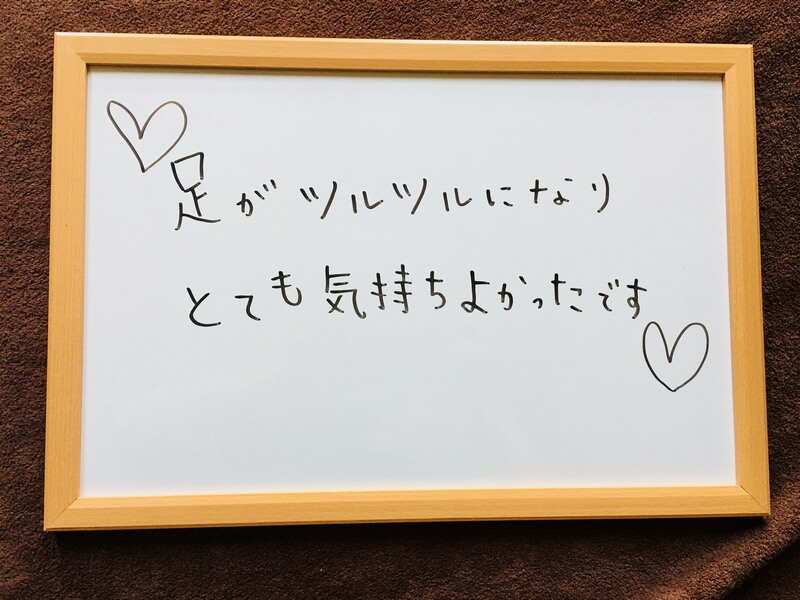 足がツルツルになり
とても気持ちよかったです